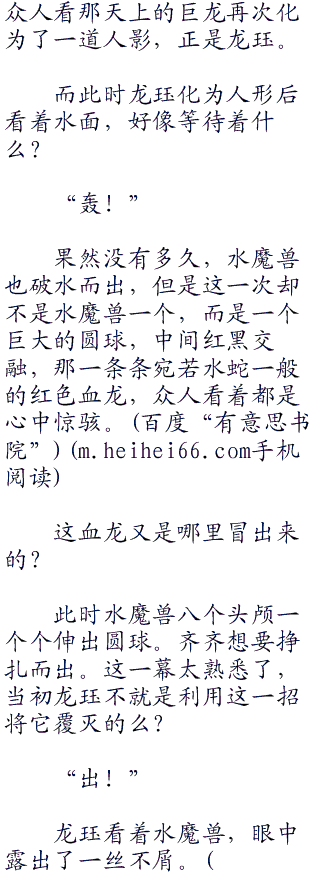 众人看那天上的巨龙再次化
为了一道人影，正是龙珏。
而此时龙珏化为人形后
看着水面，好像等待着什
么？
“轰！”
果然没有多久，水魔兽
也破水而出，但是这一次却
不是水魔兽一个，而是一个
巨大的圆球，中间红黑交
融，那一条条宛若水蛇一般
的红色血龙，众人看着都是
心中惊骇。(百度“有意思书
院”)(m.heihei66.com手机
阅读)
这血龙又是哪里冒出来
的？
此时水魔兽八个头颅一
个个伸出圆球。齐齐想要挣
扎而出。这一幕太熟悉了，
当初龙珏不就是利用这一招
将它覆灭的么？
“出！”
龙珏看着水魔兽，眼中
露出了一丝不屑。(